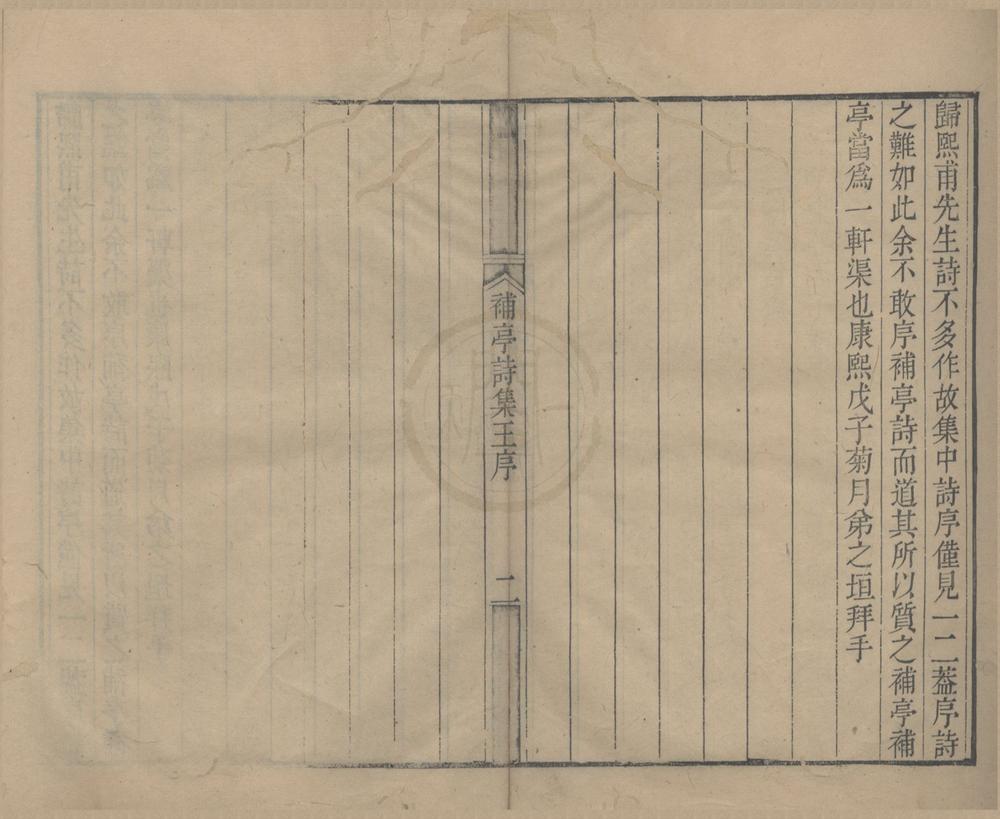 歸熙甫先生詩不多作故集中詩序僅見一二葢序詩
之難如此余不敢序補亭詩而道其所以質之補亭補
亭當爲一軒渠也康熙戊子菊月弟之垣拜手
補亭詩集王序
二